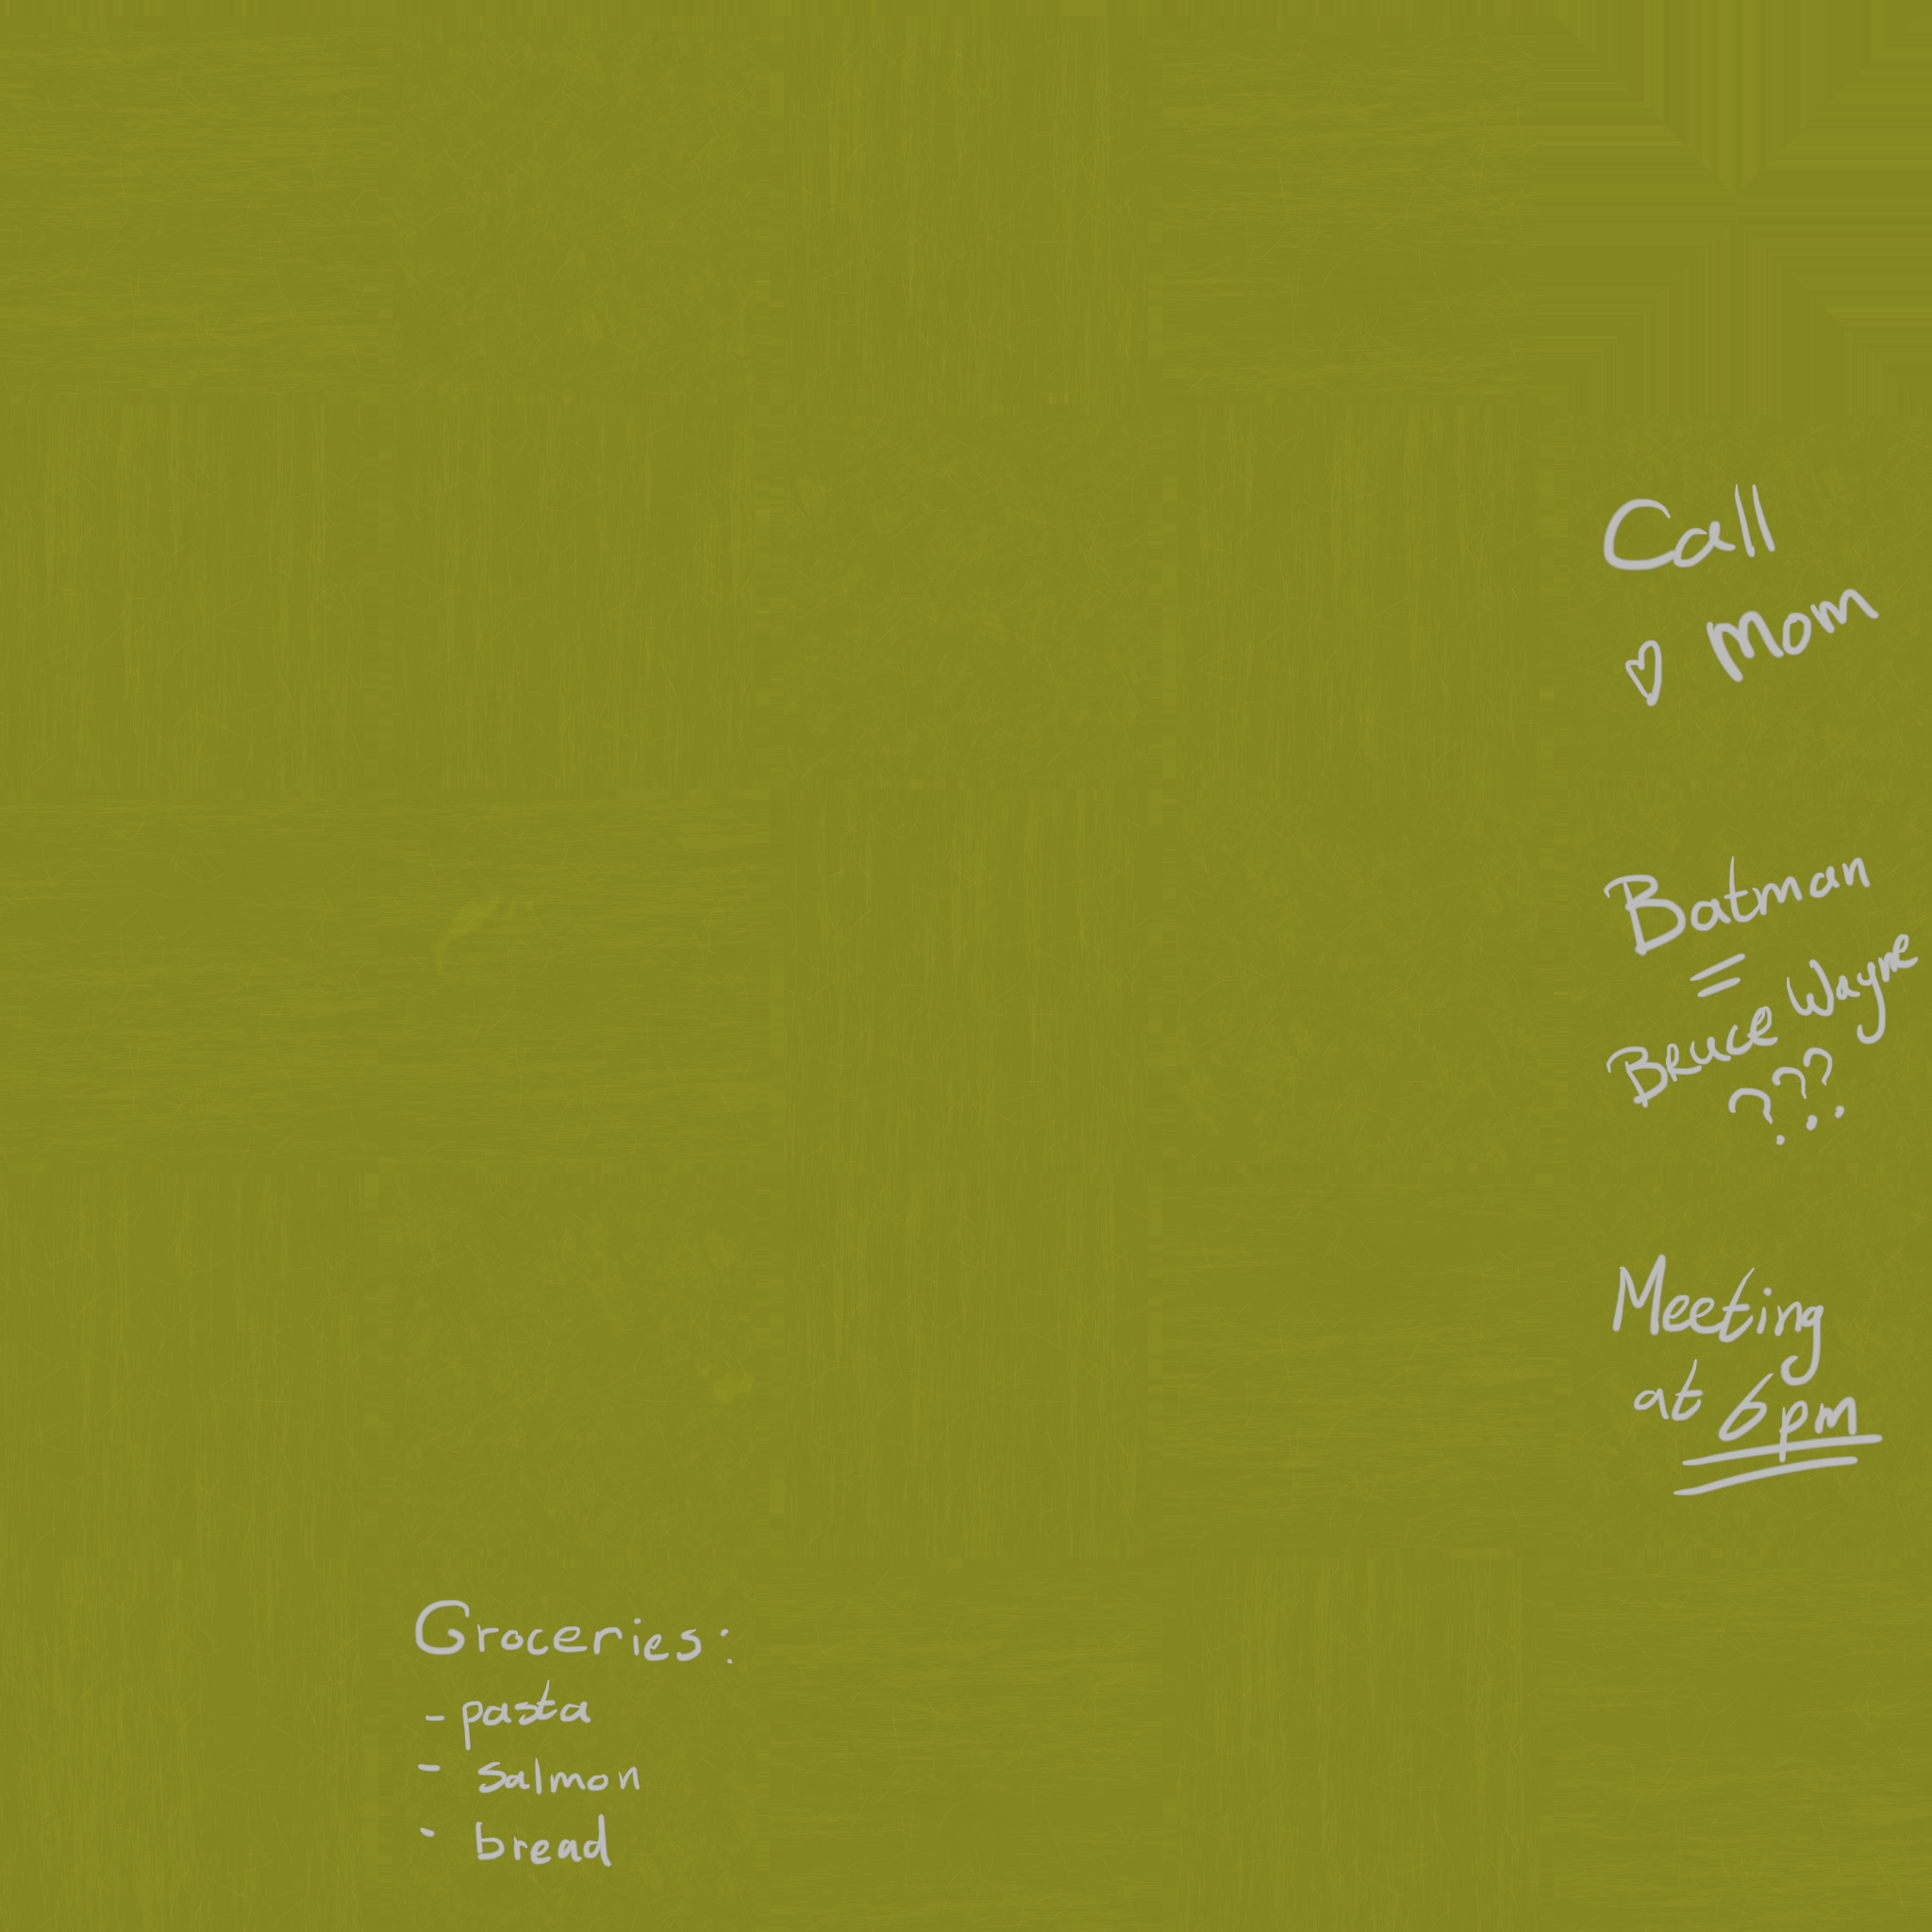 Call
♡ Mom
Batman
=
Bruce Wayne
???
Meeting
at 6pm
Groceries:
- pasta
- salmon
- bread